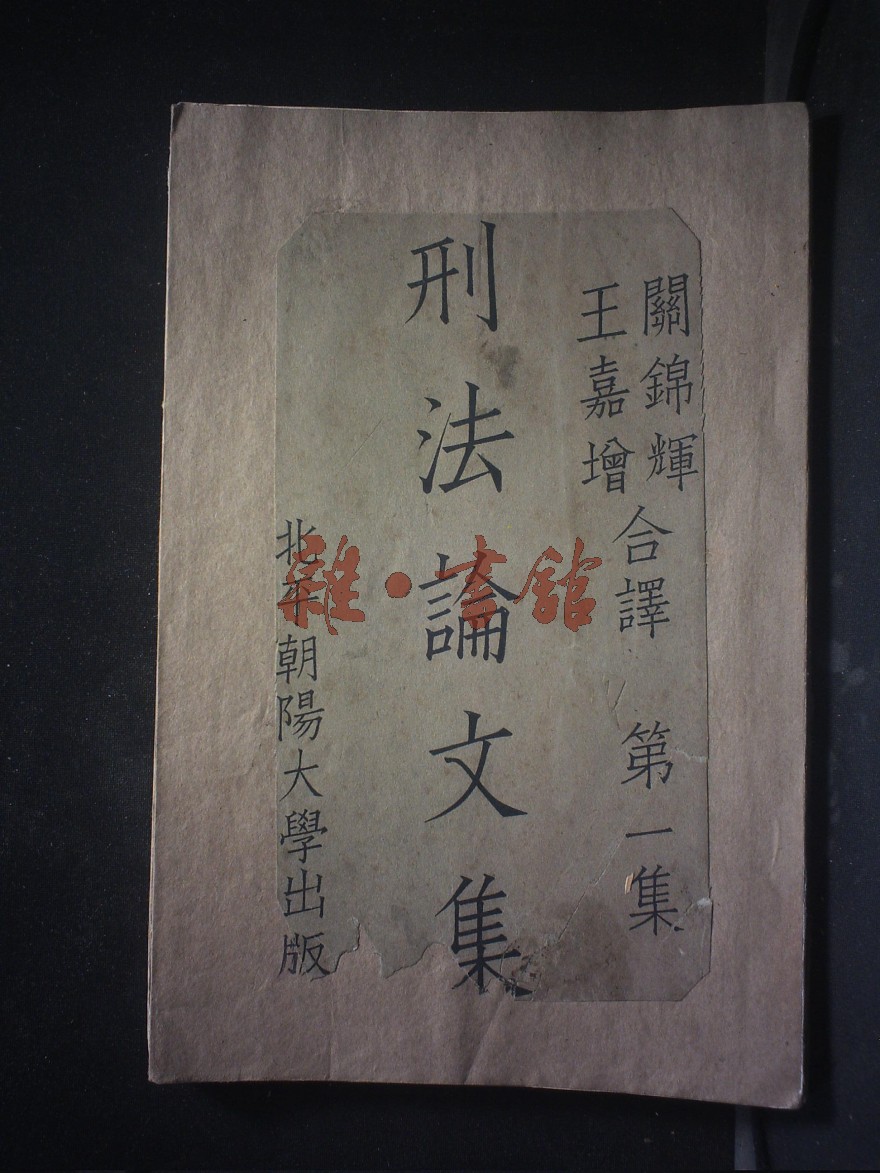 關錦輝
王嘉增
合譯 第一集
刑法論文集
北平朝陽大學出版
雜·書館